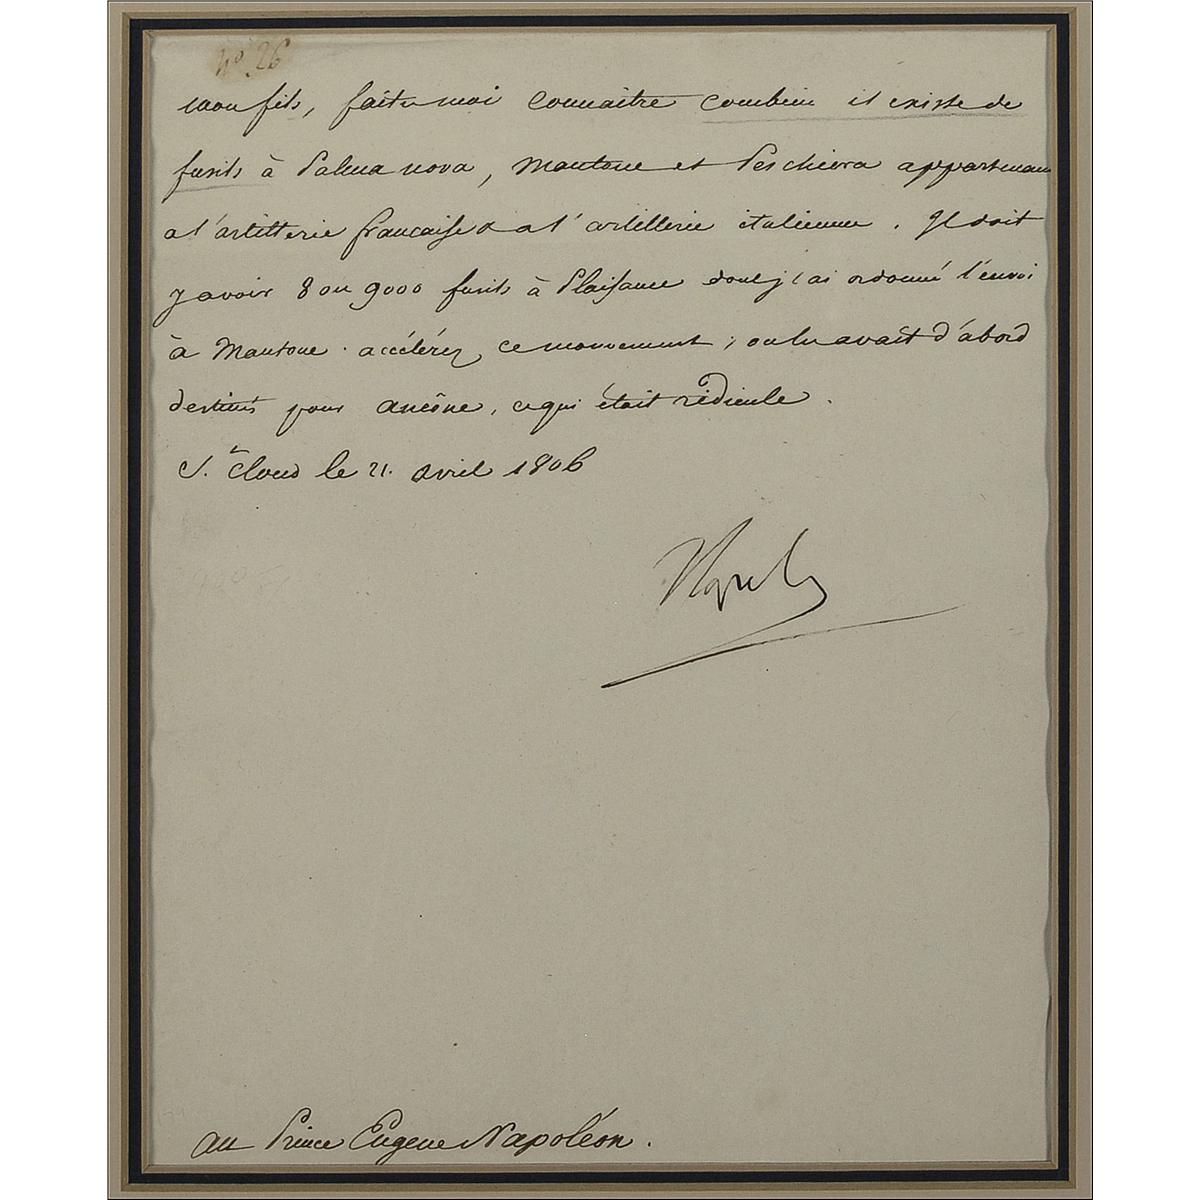 N° 26
mon fils, faites moi connaitre combien il existe de
fusils à Palma nova, Mantoue et Peschiera appartenans
a l'artillerie française & a l'artillerie italienne. Il doit
y avoir 8 ou 9000 fusils à Plaisance dont j'ai ordonné l'envoi
à Mantoue. accélérez ce mouvement; on les avait d'abord
destinés pour ancône, ce qui était ridicule.
St. Cloud le 21. avril 1806
Napole
au Prince Eugene Napoléon.